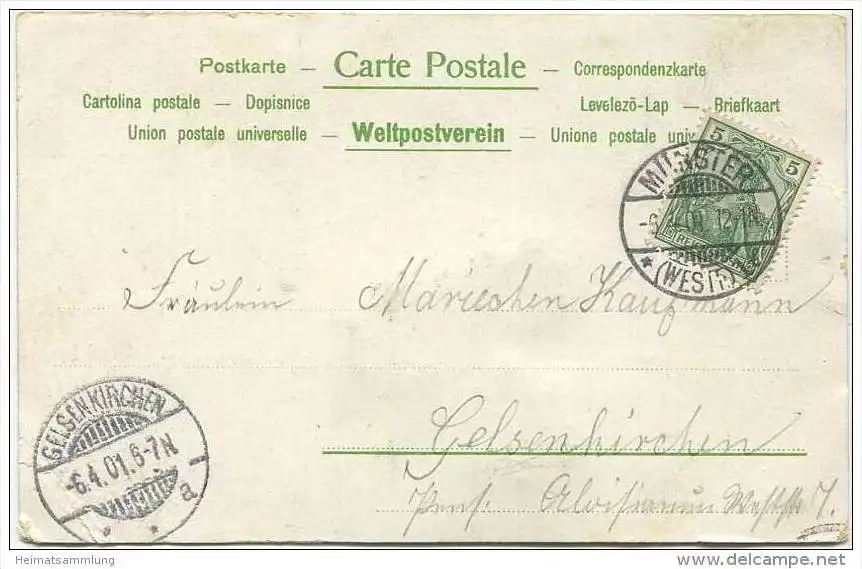 Postkarte — Carte Postale — Correspondenzkarte
Cartolina postale — Dopisnice Levelezö-Lap — Briefkaart
Union postale universelle — Weltpostverein — Unione postale univ
5 5
MÜNSTER
(WESTF)
Fräulein Mariechen Kaufmann
GELSENKIRCHEN
-6.4.01.6-7N
a
* *
Gelsenkirchen
Pens. Aloisianum Weststr 7.
Heimatsammlung
delcampe.net